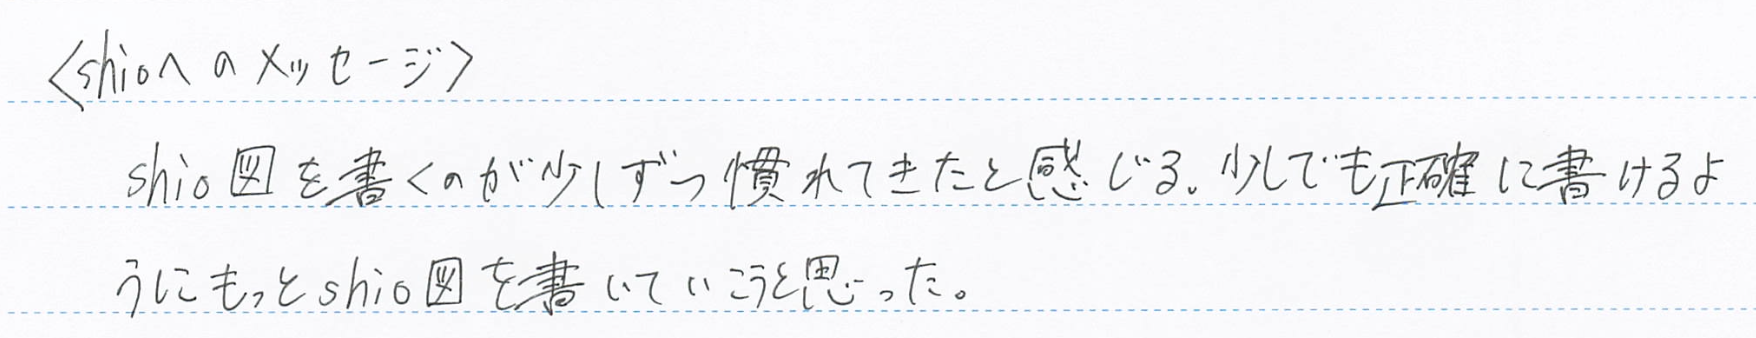 <shioへのメッセージ>
shio図を書くのが少しずつ慣れてきたと感じる。少しでも正確に書けるよ
うにもっとshio図を書いていこうと思った。